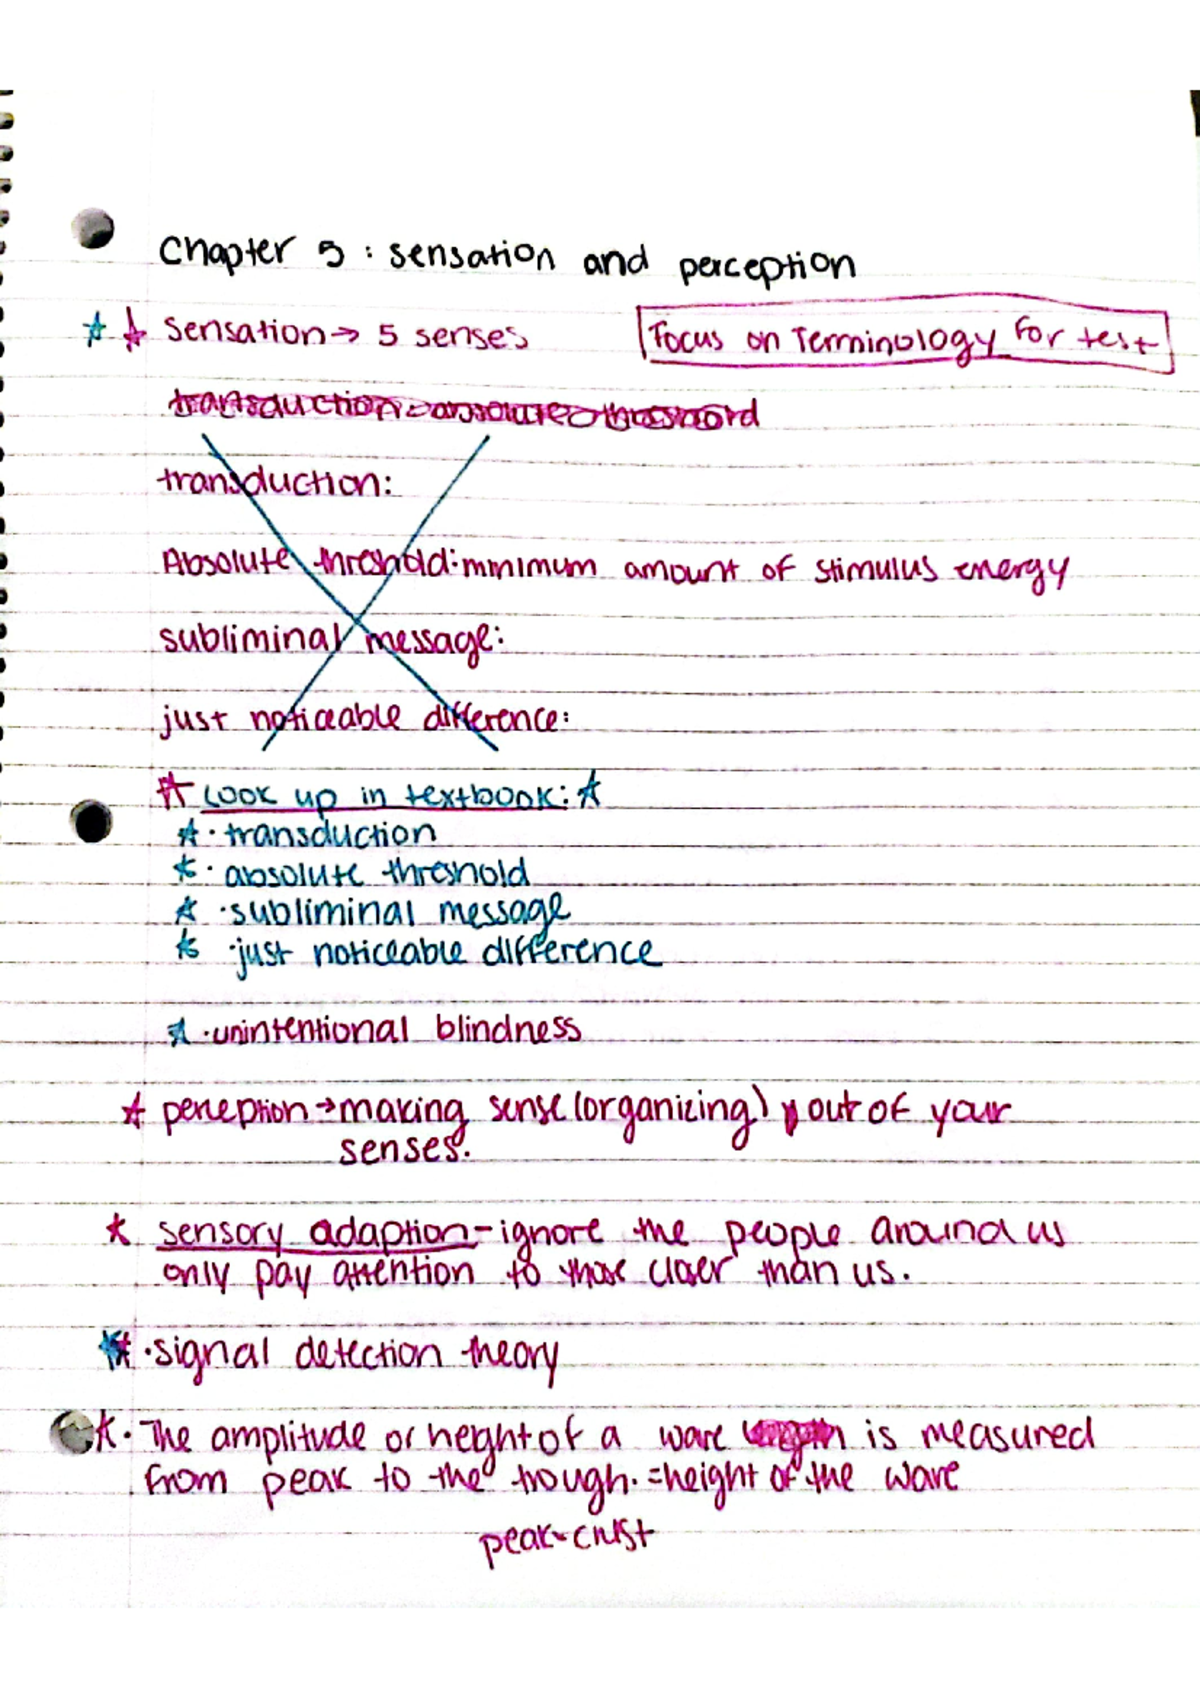 Chapter 5 : sensation and perception
sensation → 5 senses
Focus on Terminology for test
transduction:
Absolute threshold: minimum amount of stimulus energy
subliminal message:
just noticeable difference:
Look up in textbook:
· transduction
· absolute threshold
· subliminal message
· just noticeable difference
· unintentional blindness
perception → making sense (organizing) out of your
senses.
sensory adaption - ignore the people around us
only pay attention to those closer than us.
· signal detection theory
· The amplitude or heght of a wave is measured
from peak to the trough. = height of the wave
peak - crest